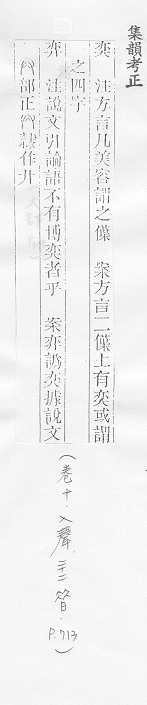 集韻考正
奕 注方言凡美容謂之僷 案方言二僷上有奕或謂
之四字
弈 注說文引論語不有博弈者乎 案弈譌奕據說文
𠬞部正𠬞隸作廾
(卷十.入聲. 昔. P.713)